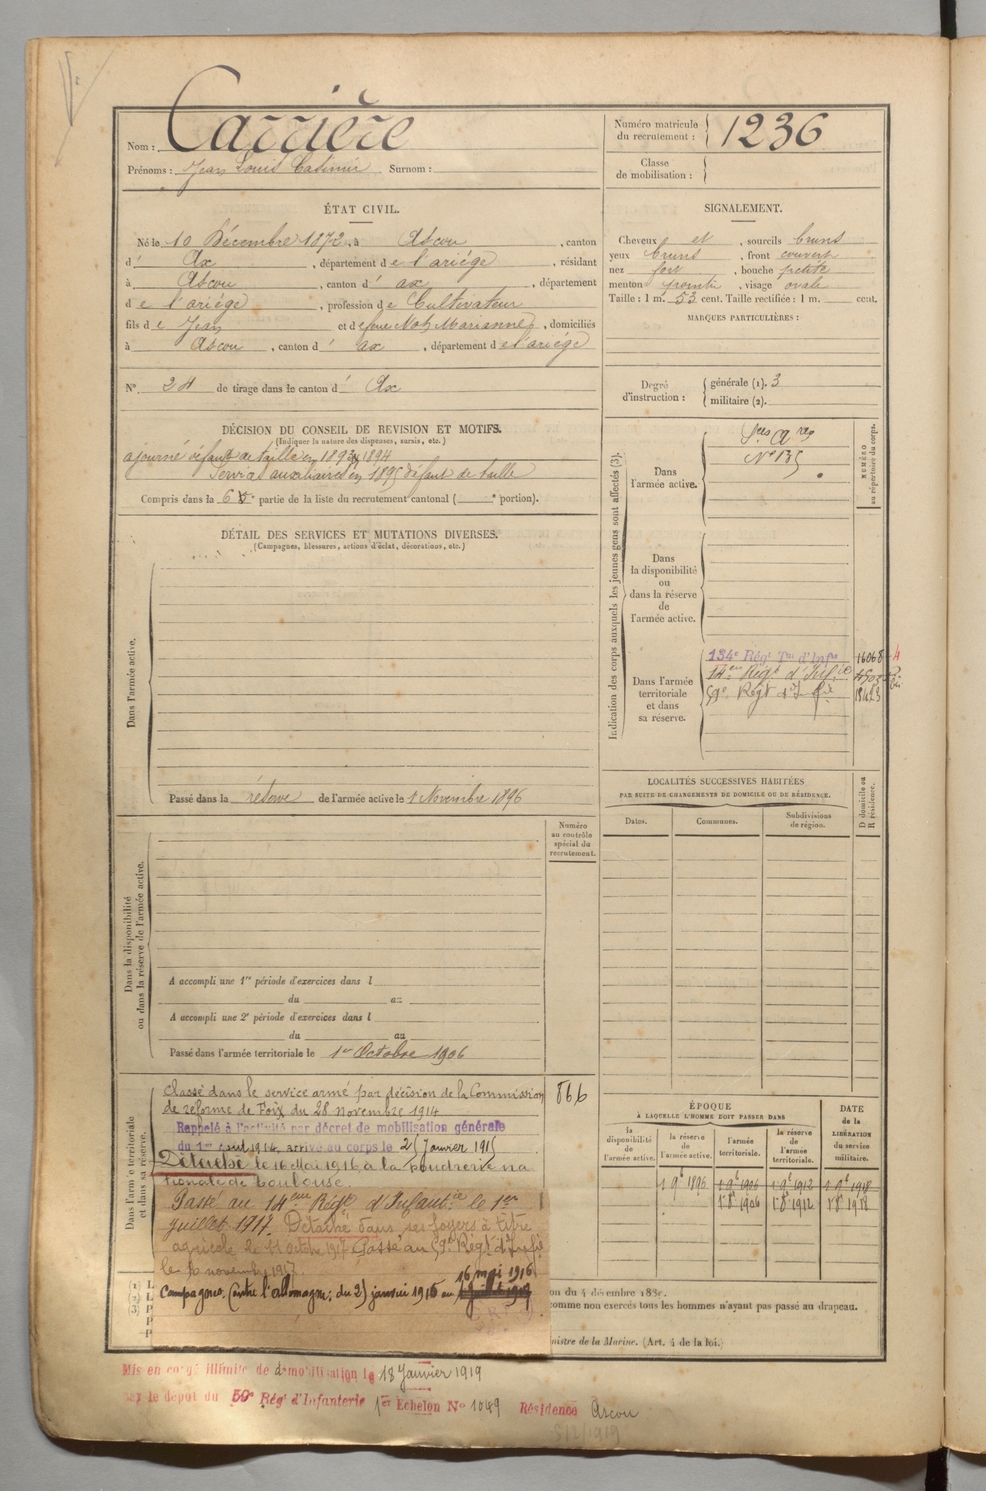 Nom : Carrière
Prénoms : Jean Louis Casimir Surnom :
Numéro matricule du recrutement : 1236
Classe de mobilisation :
ÉTAT CIVIL.
Né le 10 Décembre 1872, à Ascou, canton
d' Ax, département de l'ariége, résidant
à Ascou, canton d' ax, département
de l'ariége, profession de Cultivateur
fils de Jean et de feue Marianne, domiciliés
à Ascou, canton d' ax, département de l'ariége
N° 24 de tirage dans le canton d' Ax
SIGNALEMENT.
Cheveux et, sourcils bruns
yeux bruns, front couvert
nez fort, bouche petite
menton pointu, visage ovale
Taille : 1 m. 53 cent. Taille rectifiée : 1 m. cent.
MARQUES PARTICULIÈRES :
Degré d'instruction : générale (1). 3
militaire (2).
DÉCISION DU CONSEIL DE REVISION ET MOTIFS.
(Indiquer la nature des dispenses, sursis, etc.)
ajourné défaut de taille en 1893 & 1894
Service auxiliaire en 1895 défaut de taille
Compris dans la 6 e partie de la liste du recrutement cantonal ( e portion).
DÉTAIL DES SERVICES ET MUTATIONS DIVERSES.
(Campagnes, blessures, actions d'éclat, décorations, etc.)
Dans l'armée active.
Passé dans la réserve de l'armée active le 1 Novembre 1896
Indication des corps auxquels les jeunes gens sont affectés (3).
NUMÉRO au répertoire du corps.
Dans l'armée active.
N° 135
Dans la disponibilité ou dans la réserve de l'armée active.
Dans l'armée territoriale et dans sa réserve.
134e Régt Tal d'Infie
14eme Régt d'Infie
59e Régt d'Infie
LOCALITÉS SUCCESSIVES HABITÉES
PAR SUITE DE CHANGEMENTS DE DOMICILE OU DE RÉSIDENCE.
Dates. Communes. Subdivisions de région.
D domicile ou R résidence.
Numéro au contrôle spécial du recrutement.
Dans la disponibilité ou dans la réserve de l'armée active.
A accompli une 1re période d'exercices dans l
du au
A accompli une 2e période d'exercices dans l
du au
Passé dans l'armée territoriale le 1er Octobre 1906
Dans l'armée territoriale et dans sa réserve.
866
Classé dans le service armé par décision de la Commission
de réforme de Foix du 28 novembre 1914
Rappelé à l'activité par décret de mobilisation générale
du 1er août 1914, arrivé au corps le 25 Janvier 1915
Détaché le 16 Mai 1916 à la poudrerie na
tionale de Toulouse.
Passé au 14eme Régt d'Infantie le 1er
juillet 1917. Détaché dans ses foyers à titre
agricole le 11 octobre 1917. Passé au 59e Régt d'Infie
le novembre 1917
16 mai 1916
Campagnes. Contre l'allemagne : du 25 janvier 1915 au
ÉPOQUE
À LAQUELLE L'HOMME DOIT PASSER DANS
la disponibilité de l'armée active. la réserve de l'armée active. l'armée territoriale. la réserve de l'armée territoriale.
DATE de la LIBÉRATION du service militaire.
1 9e 1896 1 9e 1906 1 9e 1912 1 9e 1918
1 8e 1906 1 8e 1912 1 8e 1918
on du 4 décembre 188
comme non exercés tous les hommes n'ayant pas passé au drapeau.
nistre de la Marine. (Art. 4 de la loi.)
Mis en congé illimité de démobilisation le 18 Janvier 1919
par le dépôt du 59e Régt d'Infanterie 1er Echelon N° 1049 Résidence Ascou